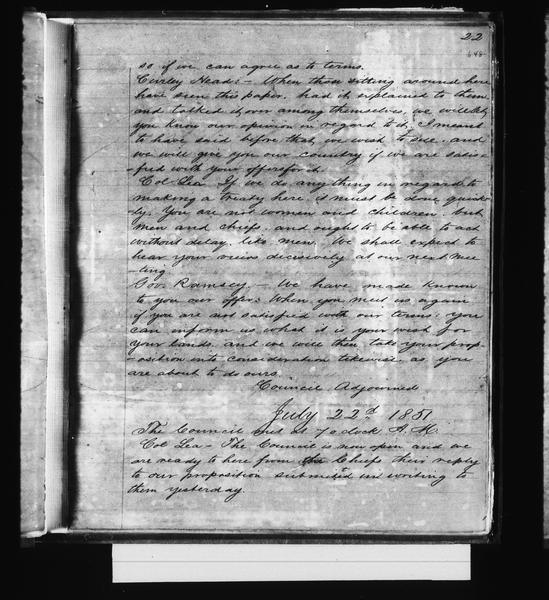 22
so if we can agree as to terms.
Curley Head:- When those sitting around here
have seen this paper, had it explained to them
and talked it over among themselves, we will let
you know our opinion in regard to it. I meant
to have said before that we wish to sell, and
we will give you our country if we are satis-
-fied with your offers for it.
Col Lea. If we do any thing in regard to
making a treaty here, it must be done, quick-
-ly. You are not women and children but
men and chiefs, and ought to be able to act
without delay, like men. We shall expect to
hear your views decisively at our next mee-
-ting
Gov. Ramsey - We have made known
to you our offer: When you meet us again
if you are not satisfied with our terms, you
can inform us what it is your wish for
your lands, and we will then take your prop-
-osition into consideration likewise, as you
are about to do ours.
Council Adjourned
July 22d 1851
The Council met at 7 o clock P. M.
Col Lea - The Council is now open and we
are ready to here from the Chiefs their reply
to our proposition submitted in writing to
them yesterday.